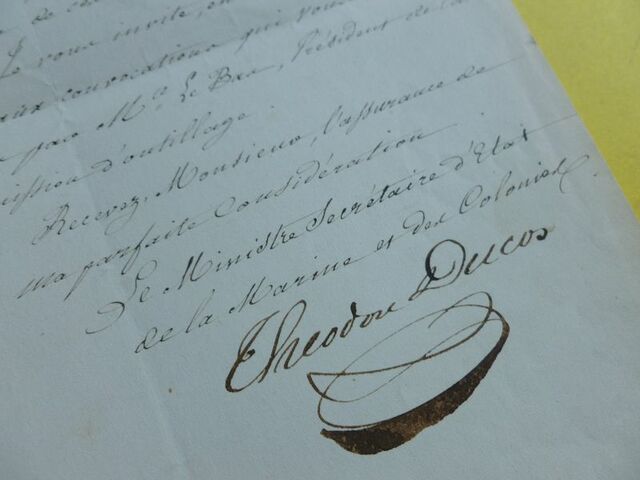 Je vous invite, en
aux convocations qui vous
par Mr. Le Bas, Président de la
ission d'outillage.
Recevez, Monsieur, l'assurance de
ma parfaite considération.
Le Ministre Secrétaire d'Etat
de la Marine et des Colonies.
Theodore Ducos